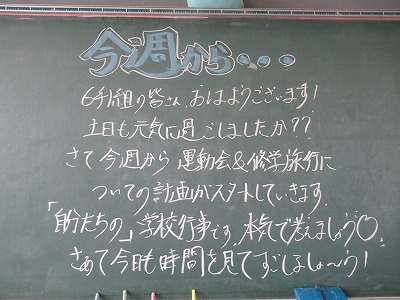 今週から・・・
6年1組の皆さん、おはようございます!
土日も元気に過ごしましたか??
さて今週から運動会&修学旅行に
ついての計画がスタートしていきます。
「自分たちの」学校行事です。本気で考えましょう○。
さあて今日も時間を見てすごしましょ〜う!